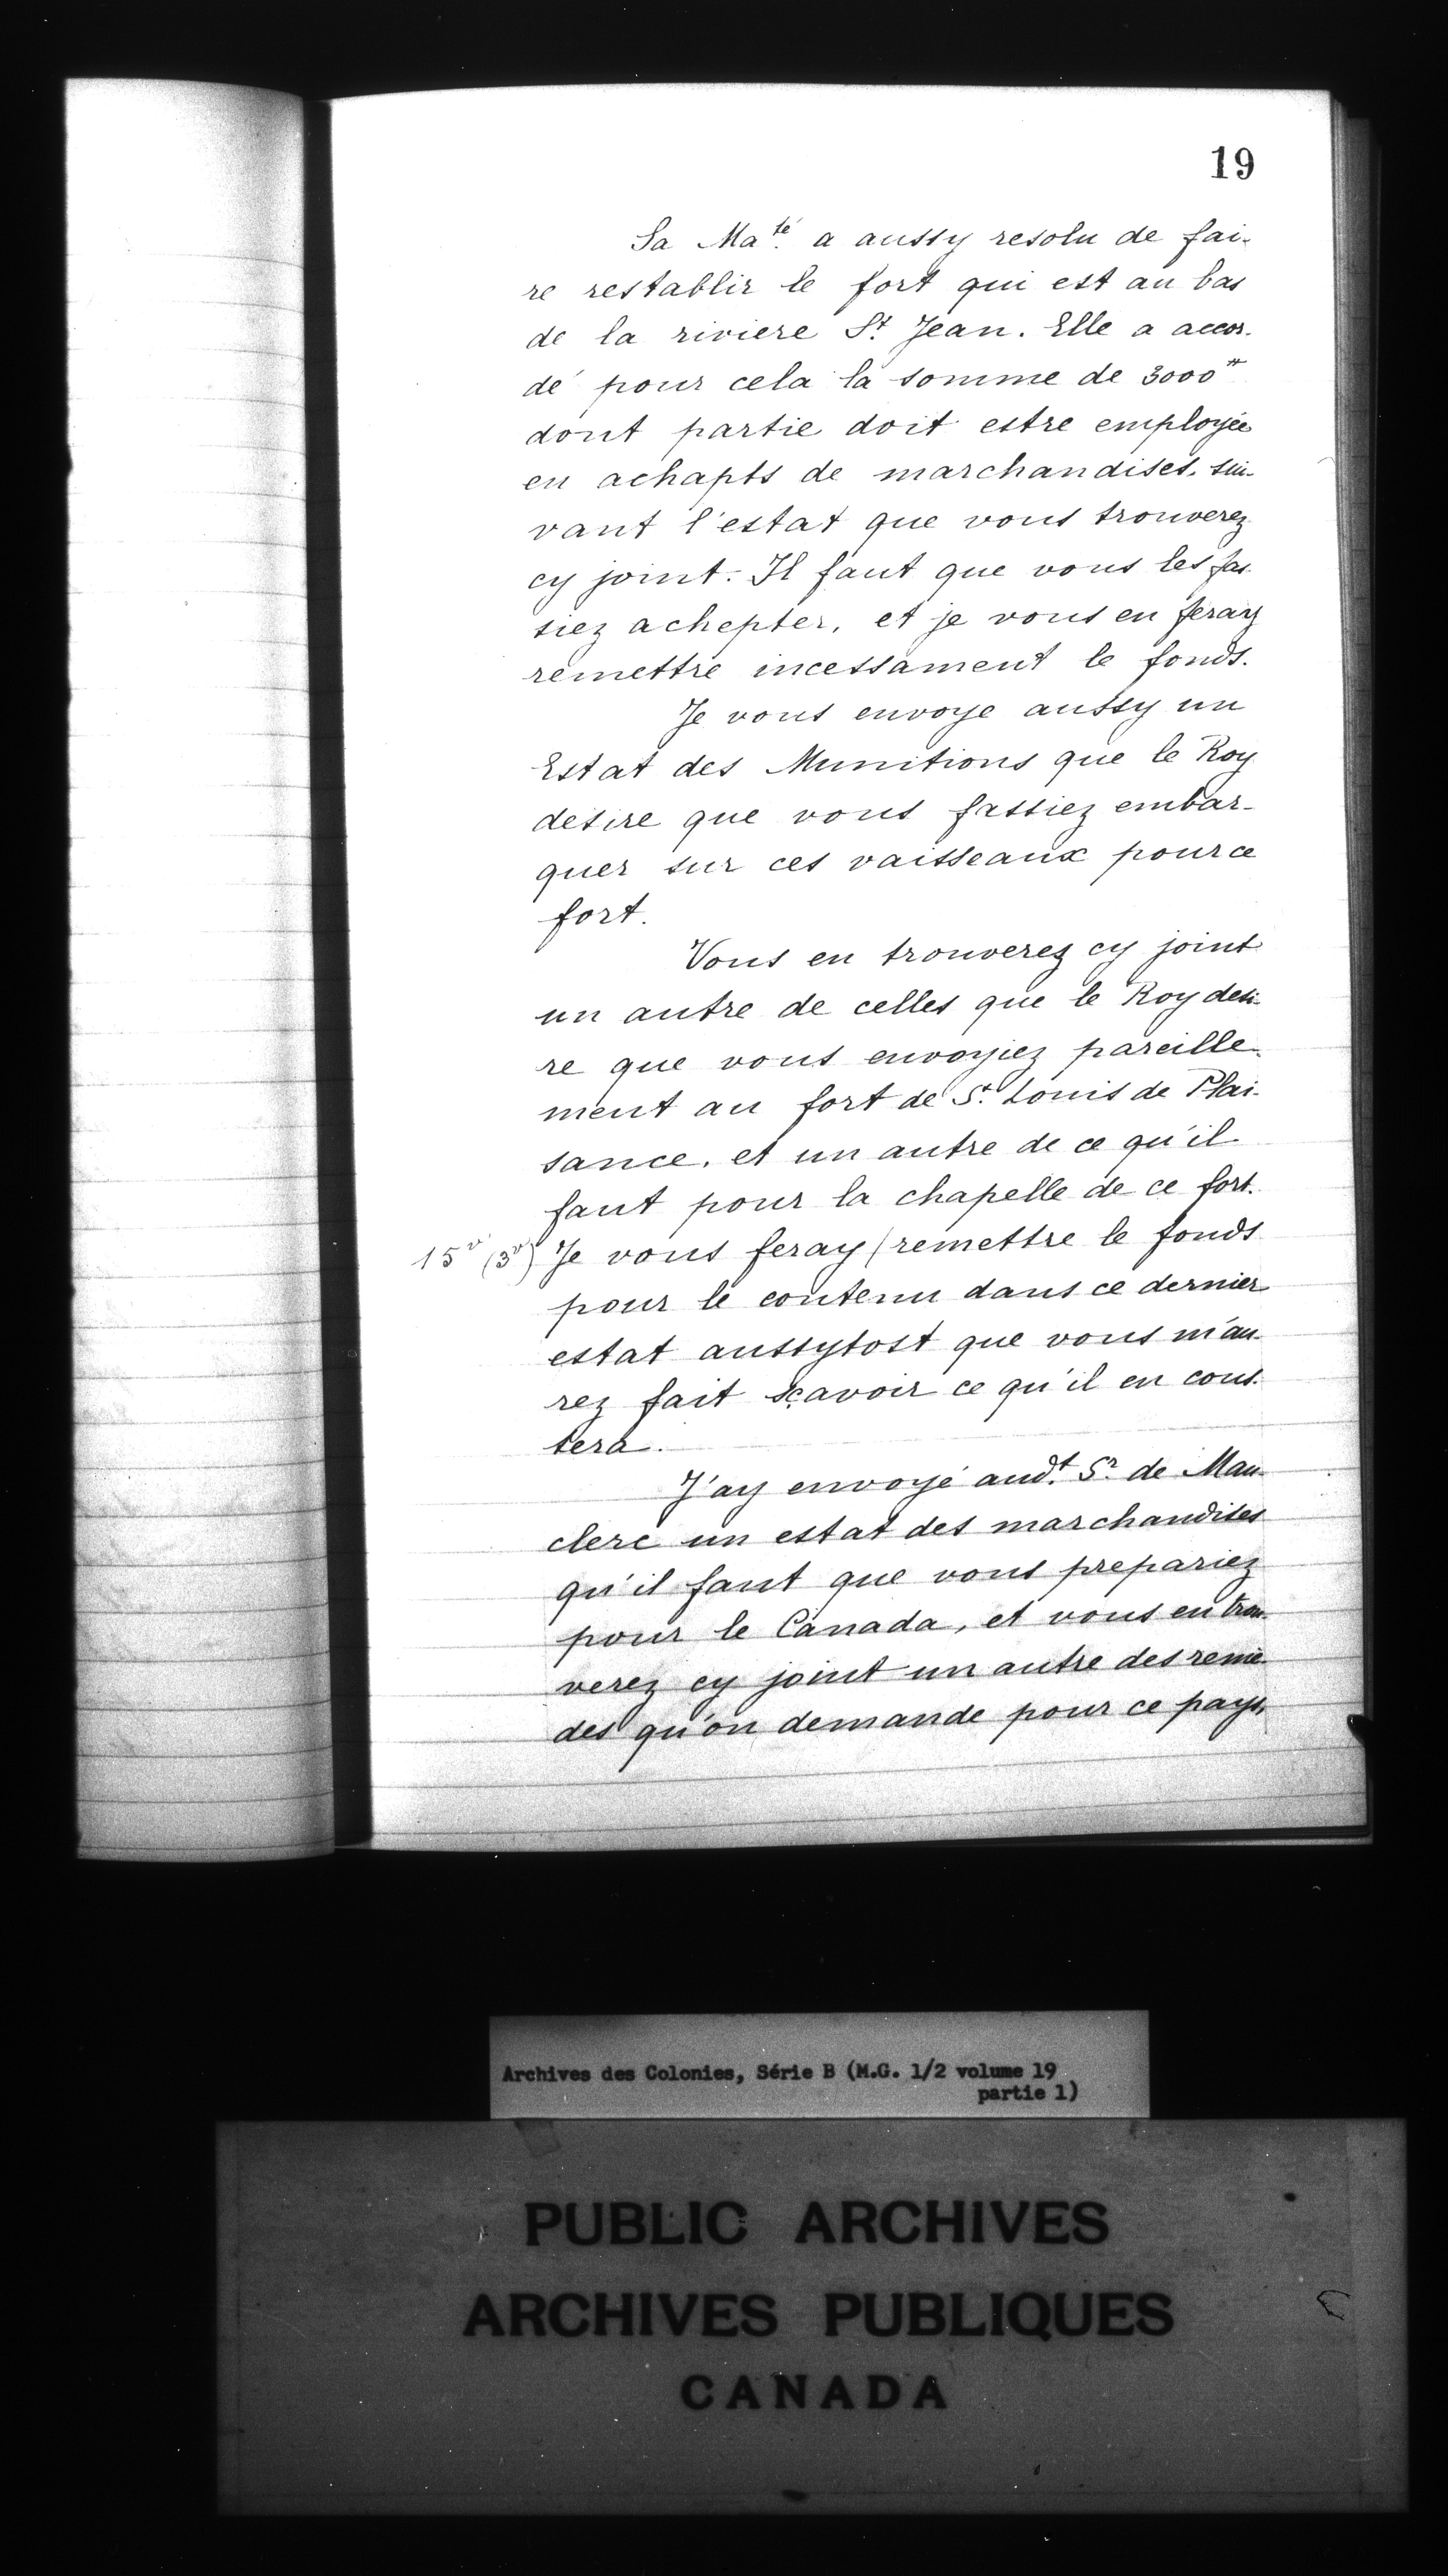 19
Sa Ma.té a aussy resolu de fai-
re restablir le fort qui est au bas
de la riviere St. Jean. Elle a accor-
dé pour cela la somme de 3000#
dont partie doit estre employée
en achapts de marchandises, sui-
vant l'estat que vous trouverez
cy joint. Il faut que vous les fas-
siez achepter, et je vous en feray
remettre incessament le fonds.
Je vous envoye aussy un
Estat des Munitions que le Roy
desire que vous fassiez embar-
quer sur ces vaisseaux pour ce
fort.
Vous en trouverez cy joint
un autre de celles que le Roy desi-
re que vous envoyiez pareille-
ment au fort de St. Louis de Plai-
sance, et un autre de ce qu'il
faut pour la chapelle de ce fort.
15v (3v) Je vous feray / remettre le fonds
pour le contenu dans ce dernier
estat aussytost que vous m'au-
rez fait sçavoir ce qu'il en cous-
tera.
J'ay envoyé aud.t Sr. de Mau-
clerc un estat des marchandises
qu'il faut que vous prepariez
pour le Canada, et vous en trou-
verez cy joint un autre des reme-
des qu'on demande pour ce pays,
Archives des Colonies, Série B (M.G. 1/2 volume 19
partie 1)
PUBLIC ARCHIVES
ARCHIVES PUBLIQUES
CANADA